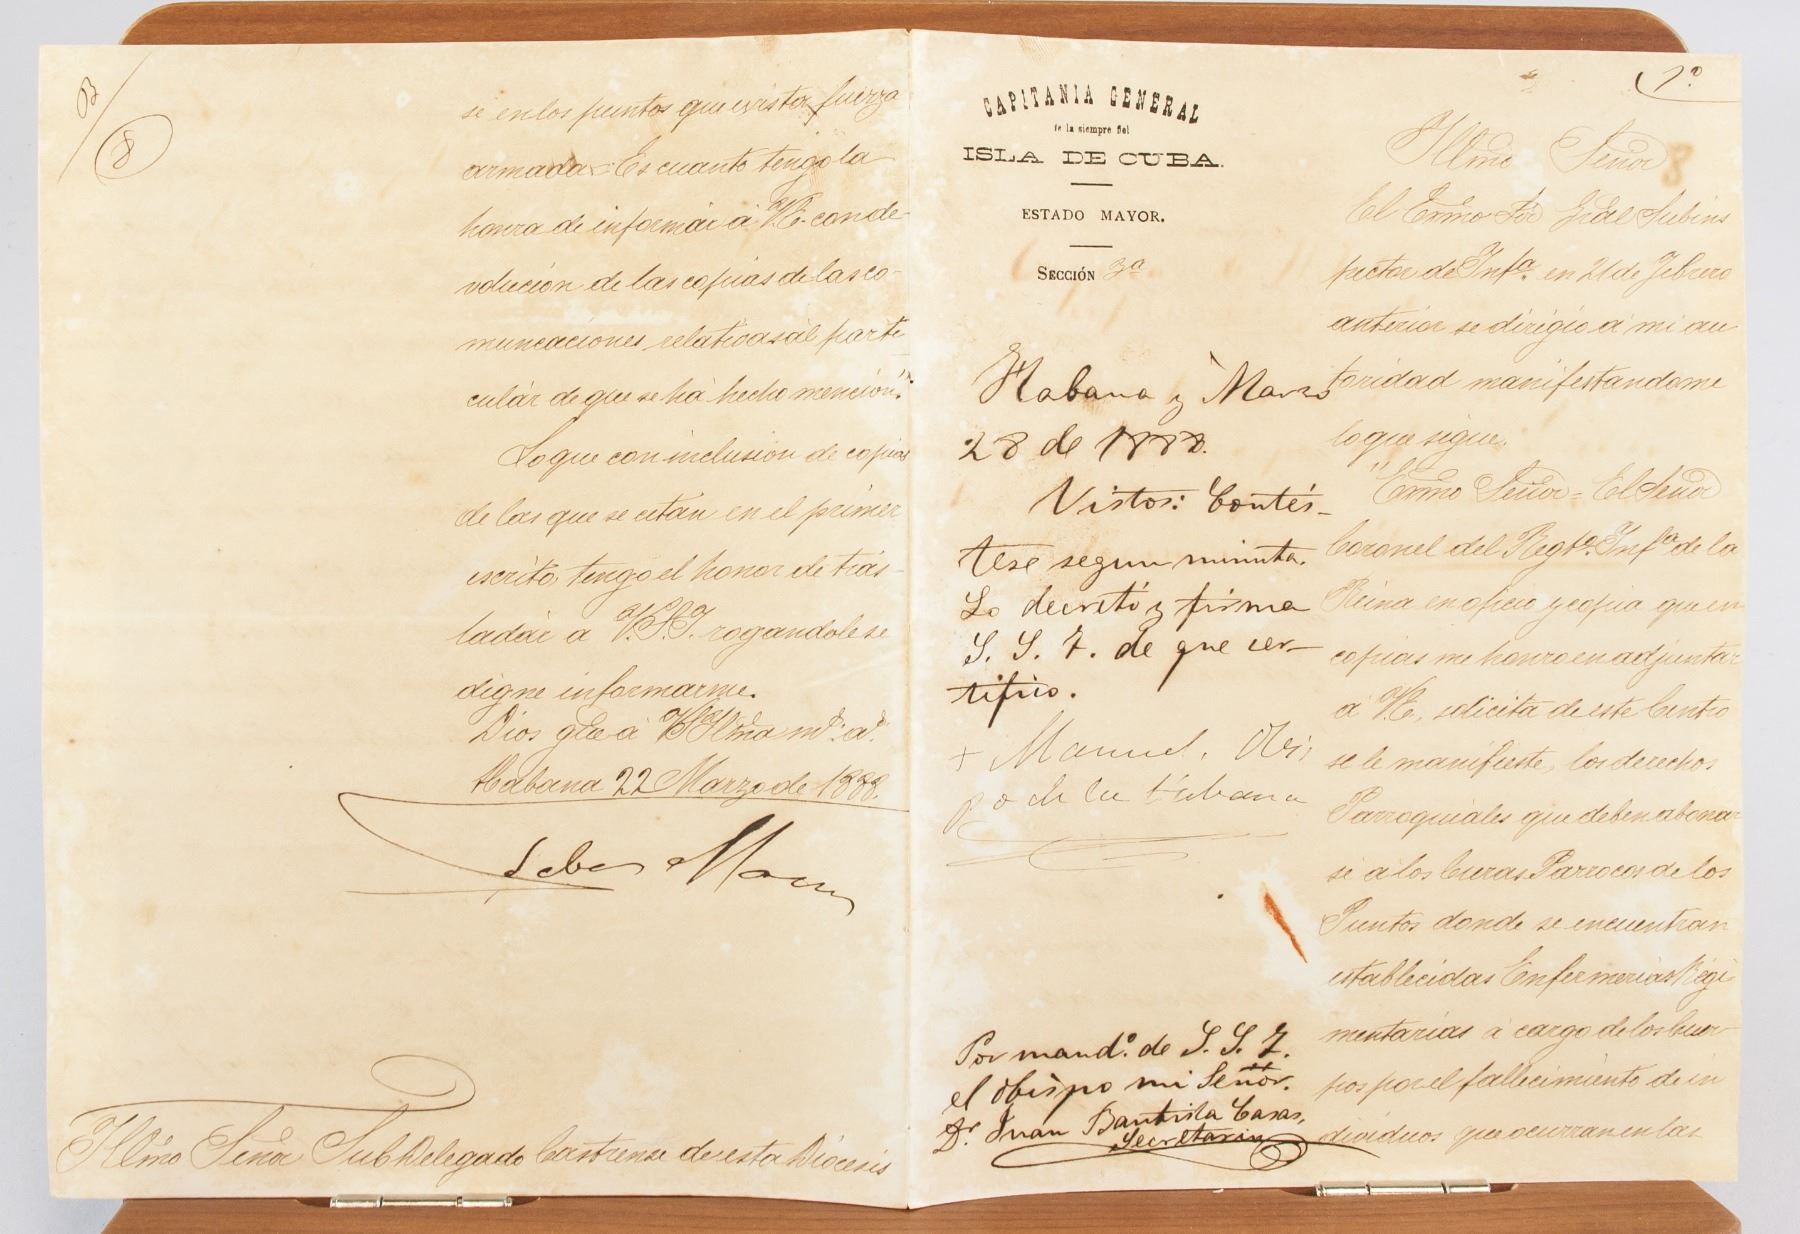 B
8
se en los puntos que exista fuerza
armada = Es cuanto tengo la
honra de informár á V.E. con de-
volución de las copias de las co-
municaciones relativas al parti-
culár de que se há hecho mención."
Lo que con inclusion de copias
de las que se citán en el primer
escrito, tengo el honor de trás-
ladár a V.S.I. rogandole se
digne informarme.
Dios gde á V.S. Ilma ms. as.
Habana 22 Marzo de 1888.
Ilmo Señor SubDelegado Castrense de esta Diócesis
1º
CAPITANIA GENERAL
de la siempre fiel
ISLA DE CUBA.
ESTADO MAYOR.
SECCIÓN 3ª
Habana y Marzo
28 de 1888.
Vistos: Contés-
tese segun minuta.
Lo decretó y firma
S. S. I. de que cer-
tifico.
+ Manuel, Obis
po de la Habana
Por mandº de S. S. I.
el obispo mi Señor.
Dr Juan Bautista Casas,
Secretario
Iltmo Señor
3
El Exmo Sór Gral Subins
pector de Infª. en 21 de Febrero
anterior se dirigió á mi au
toridad manifestandome
lo que sigue.
"Exmo Señor = El Señor
Coronel del Regtº. Infª de la
Reina en oficio y copia que en
copias me honro en adjuntar
á V.E, solicita de este Centro
se le manifieste, los derechos
Parroquiales que deben abonar
se a los Curas Parrocos de los
Puntos donde se encuentran
establecidas Enfermerias Regi
mentarias á cargo de los Cuer-
pos por el fallecimiento de in
dividuos que ocurran en las